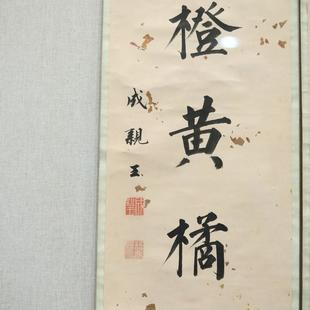 橙黄橘
成親王